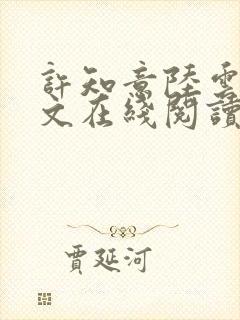 許知意陸雲
文在綫閱讀
賈延河